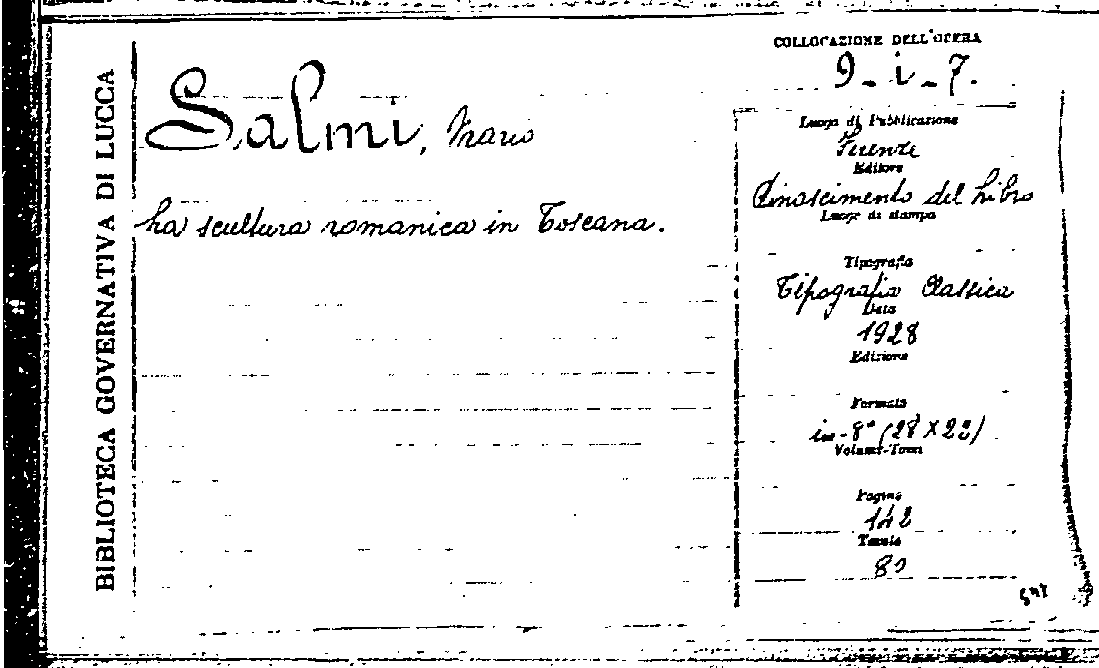 BIBLIOTECA GOVERNATIVA DI LUCCA
Salmi, Mario
La scultura romanica in Toscana.
COLLOCAZIONE DELL'OPERA
9-i-7.
Luogo di Pubblicazione
Firenze
Editore
Rinascimento del Libro
Luogo di stampa
Tipografia
Tipografia Classica
Data
1928
Edizione
Formato
in-8° (28X23)
Volumi-Tomi
Pagine
142
Tavole
80